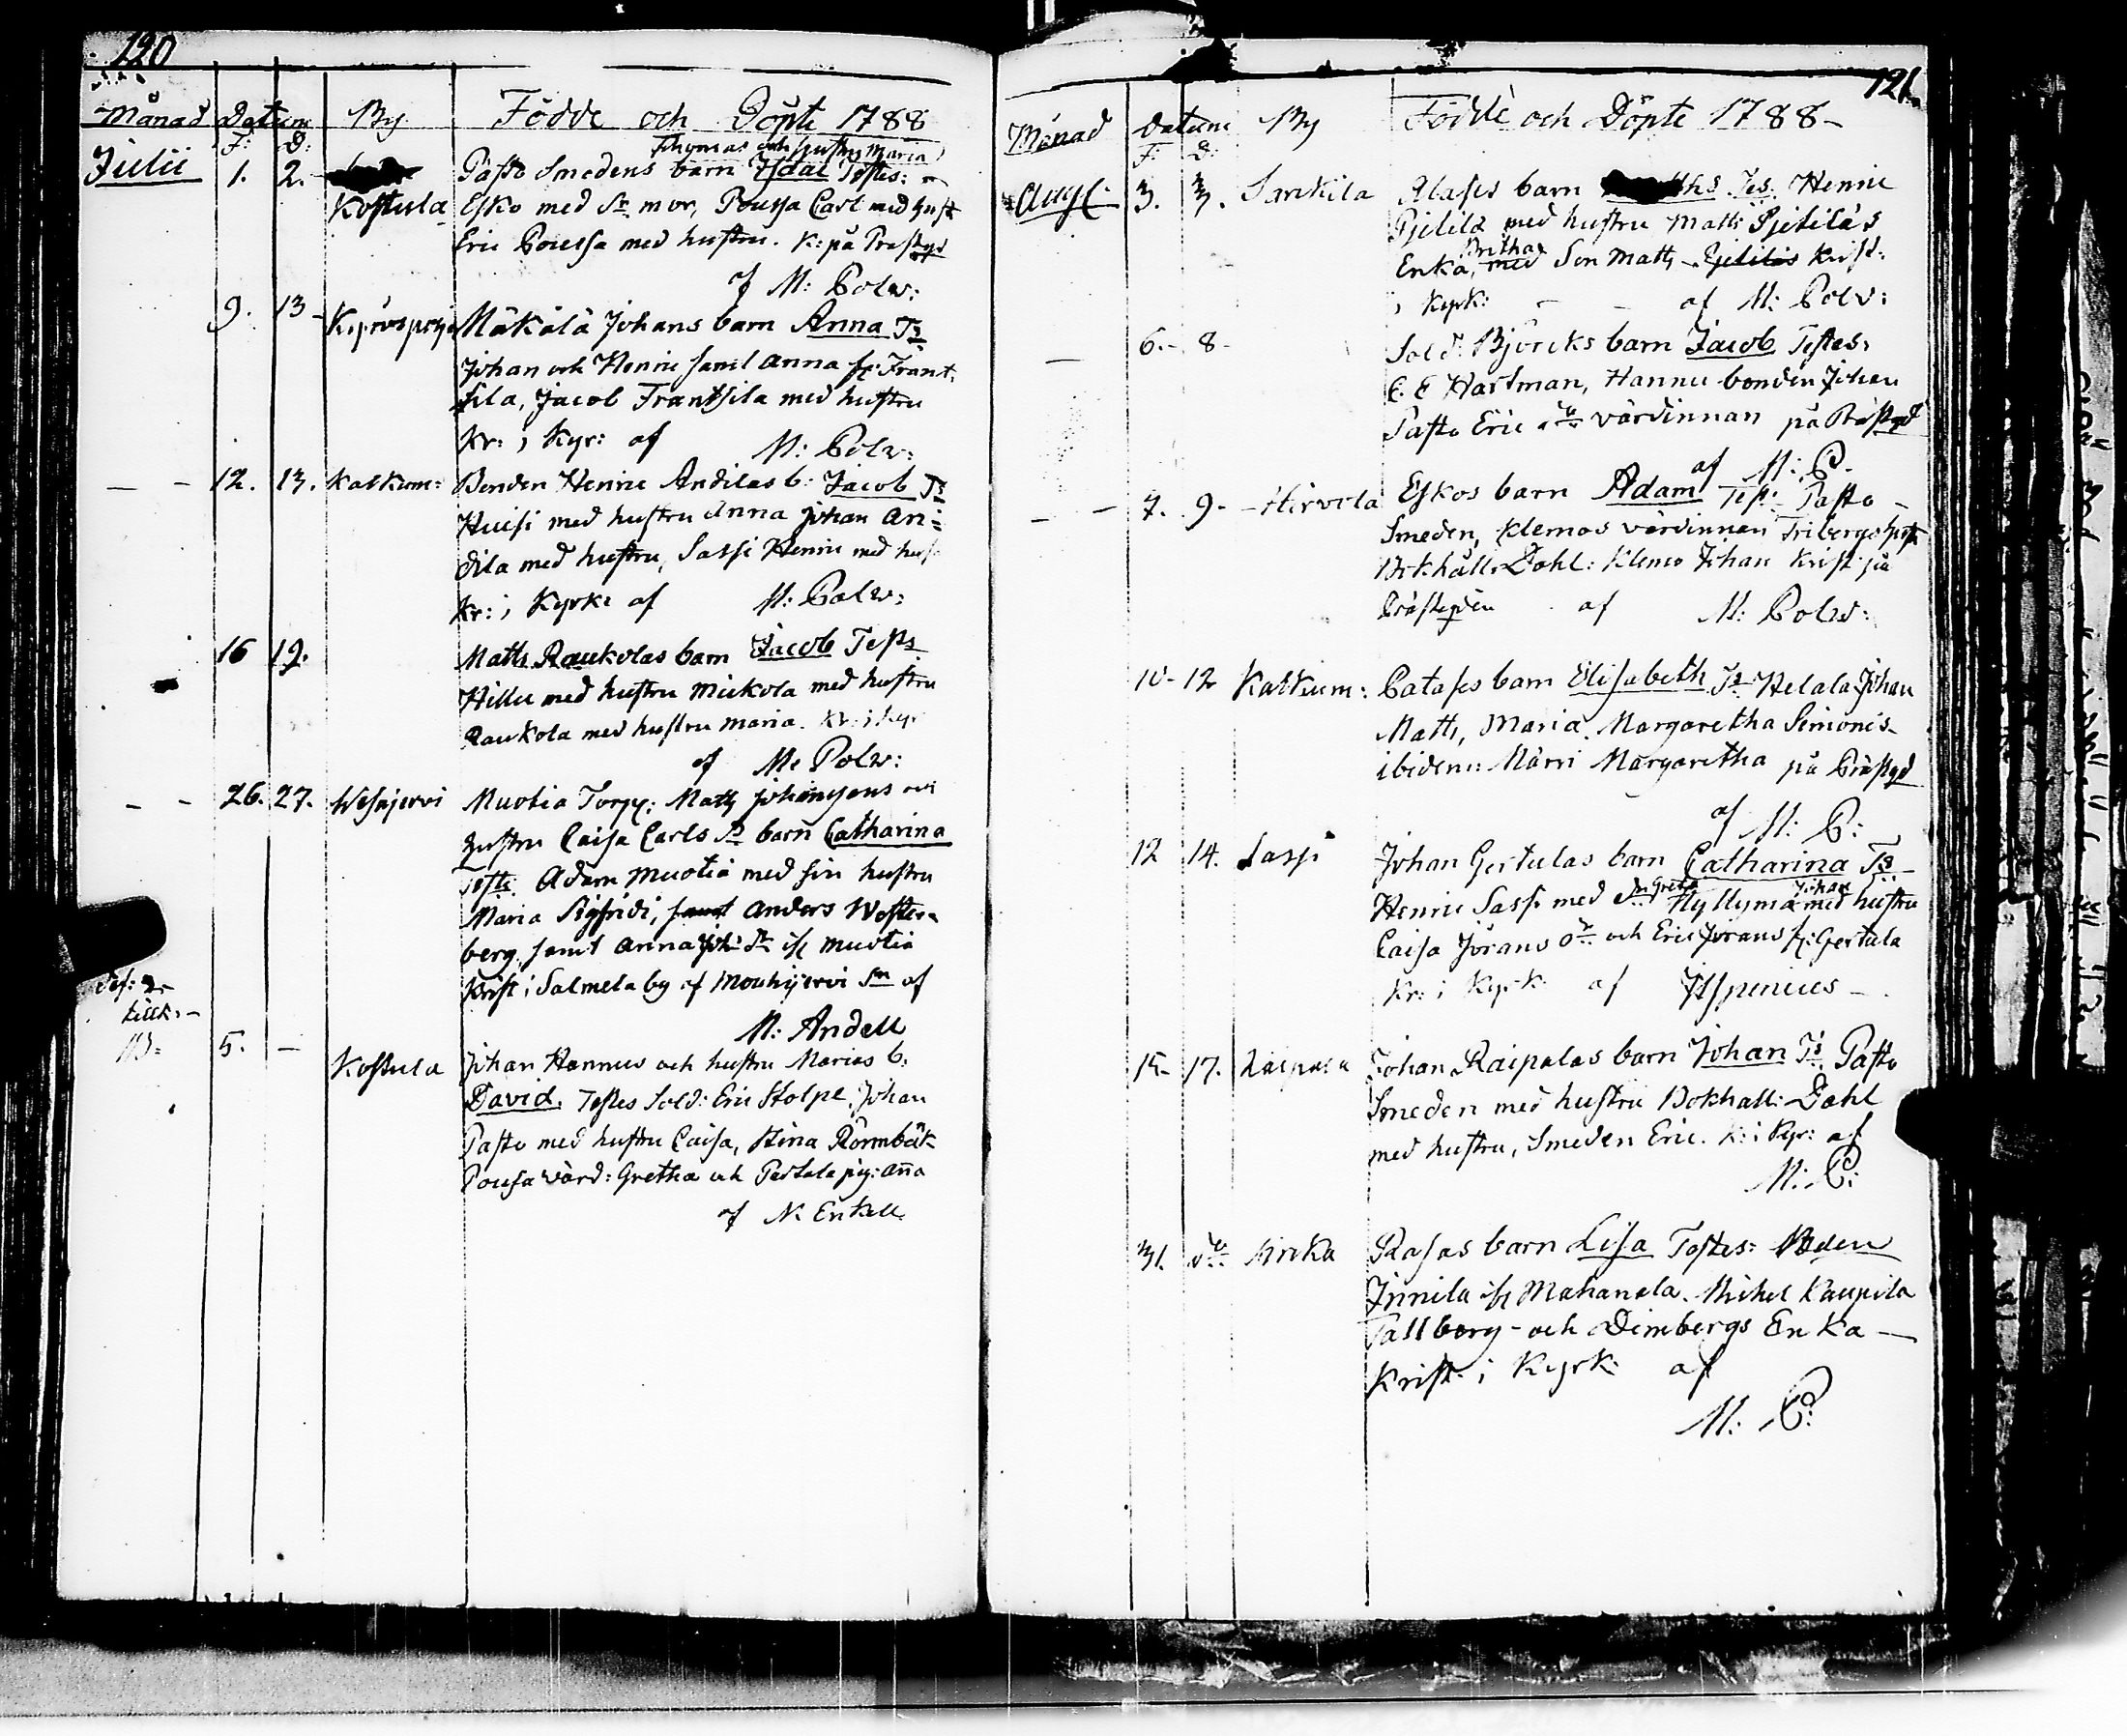 120
Månad Datum By Födde och Döpte 1788
F: D:
Thomas och hustru Maria
Julii 1. 2. Pasto Smedens barn Testes:
Kostula Esko med Sn mor, Poussa Carl med hust
Eric Poussa med hustru. K: på Prestgd
af M: Polv:
9. 13 Mäkälä Johans barn Anna Ts
Johan och Henric samt Anna fr: Frant.
sila, Jacob Frantsila med hustru
Kr: i Kyr: af M: Polv:
12. 13. Kalkun: Bonden Henric Andilas b: Jacob Ts
Huisi med hustru Anna Johan An=
dila med hustru, Sassi Henric med hust
Kr: i Kyrk: af M: Polv:
16 19. Matts Raukolas barn Jacob Tests
Hillu med hustru Miekola med hustru
Raukola med hustru Maria. Kr: i Kyr
af M: Polv:
26. 27. Wesajervi Muotia Torp: Matts Johanssons och
hustru Caisa Carls Dr barn Catharina
Test: Adam Muotia med sin hustru
Maria Sigfridi, samt Anders Wester-
berg, samt Anna Joh: Dr ifr Muotia
Krist i Salmela by af Mouhijervi Sn af
M: Andell
5. — Kostula Johan Hannus och hustru Marias b:
David. Testes Sold: Eric Stolpe, Johan
Pasto med hustru Caisa, Stina Römbäk
Pousa Värd: Gretha och Pertula pig: Aña
af N: Enkell
121.
Månad Datum By Födde och Döpte 1788-
F: D:
Augl 3. 3. Sarkila Alases barn Tes: Henric
Pjetilä med hustru Matts Pjetiläs
Britha
Enka, med Son Matts Pjetiläs Krist:
i Kyrk: af M: Polv:
6. 8 Sold: Björcks barn Jacob Testes:
C. E Hartman, Hannu bonden Johan
Pasto Eric do värdinnan på Prästgd
af M: P.
7. 9. Hirvela Eskos barn Adam Test: Pasto
Smeden, Klemos värdinnan Tribergs hust
Bokhåll: Dahl: Klemo Johan Krist på
Prästgden af M: Polv:
10 12 Kalkun: Patases barn Elisabeth Ts Helala Johan
Matts, Maria, Margaretha Simonis
ibidem: Märri Margaretha på Prästgd
af M: P:
12 14. Sassi Johan Gertulas barn Catharina Ts
Greta Johan
Henric Sassi med Hyllymä med hustru
Caisa Jörans Dr och Eric Jörans fr: Gertula
Kr: i Kyrk: af
15 17. Raipala Johan Raipalas barn Johan Ts Pasto
Smeden med hustru Bokhåll: Dahl
med hustru, Smeden Eric. K: i Kyr: af
M: P:
31. do Rasas barn Lisa Testes:
Innila ifr Mahanala. Michel Kaupila
Tallberg och Dimbergs Enka
Krist: i Kyrk: af
M: P: